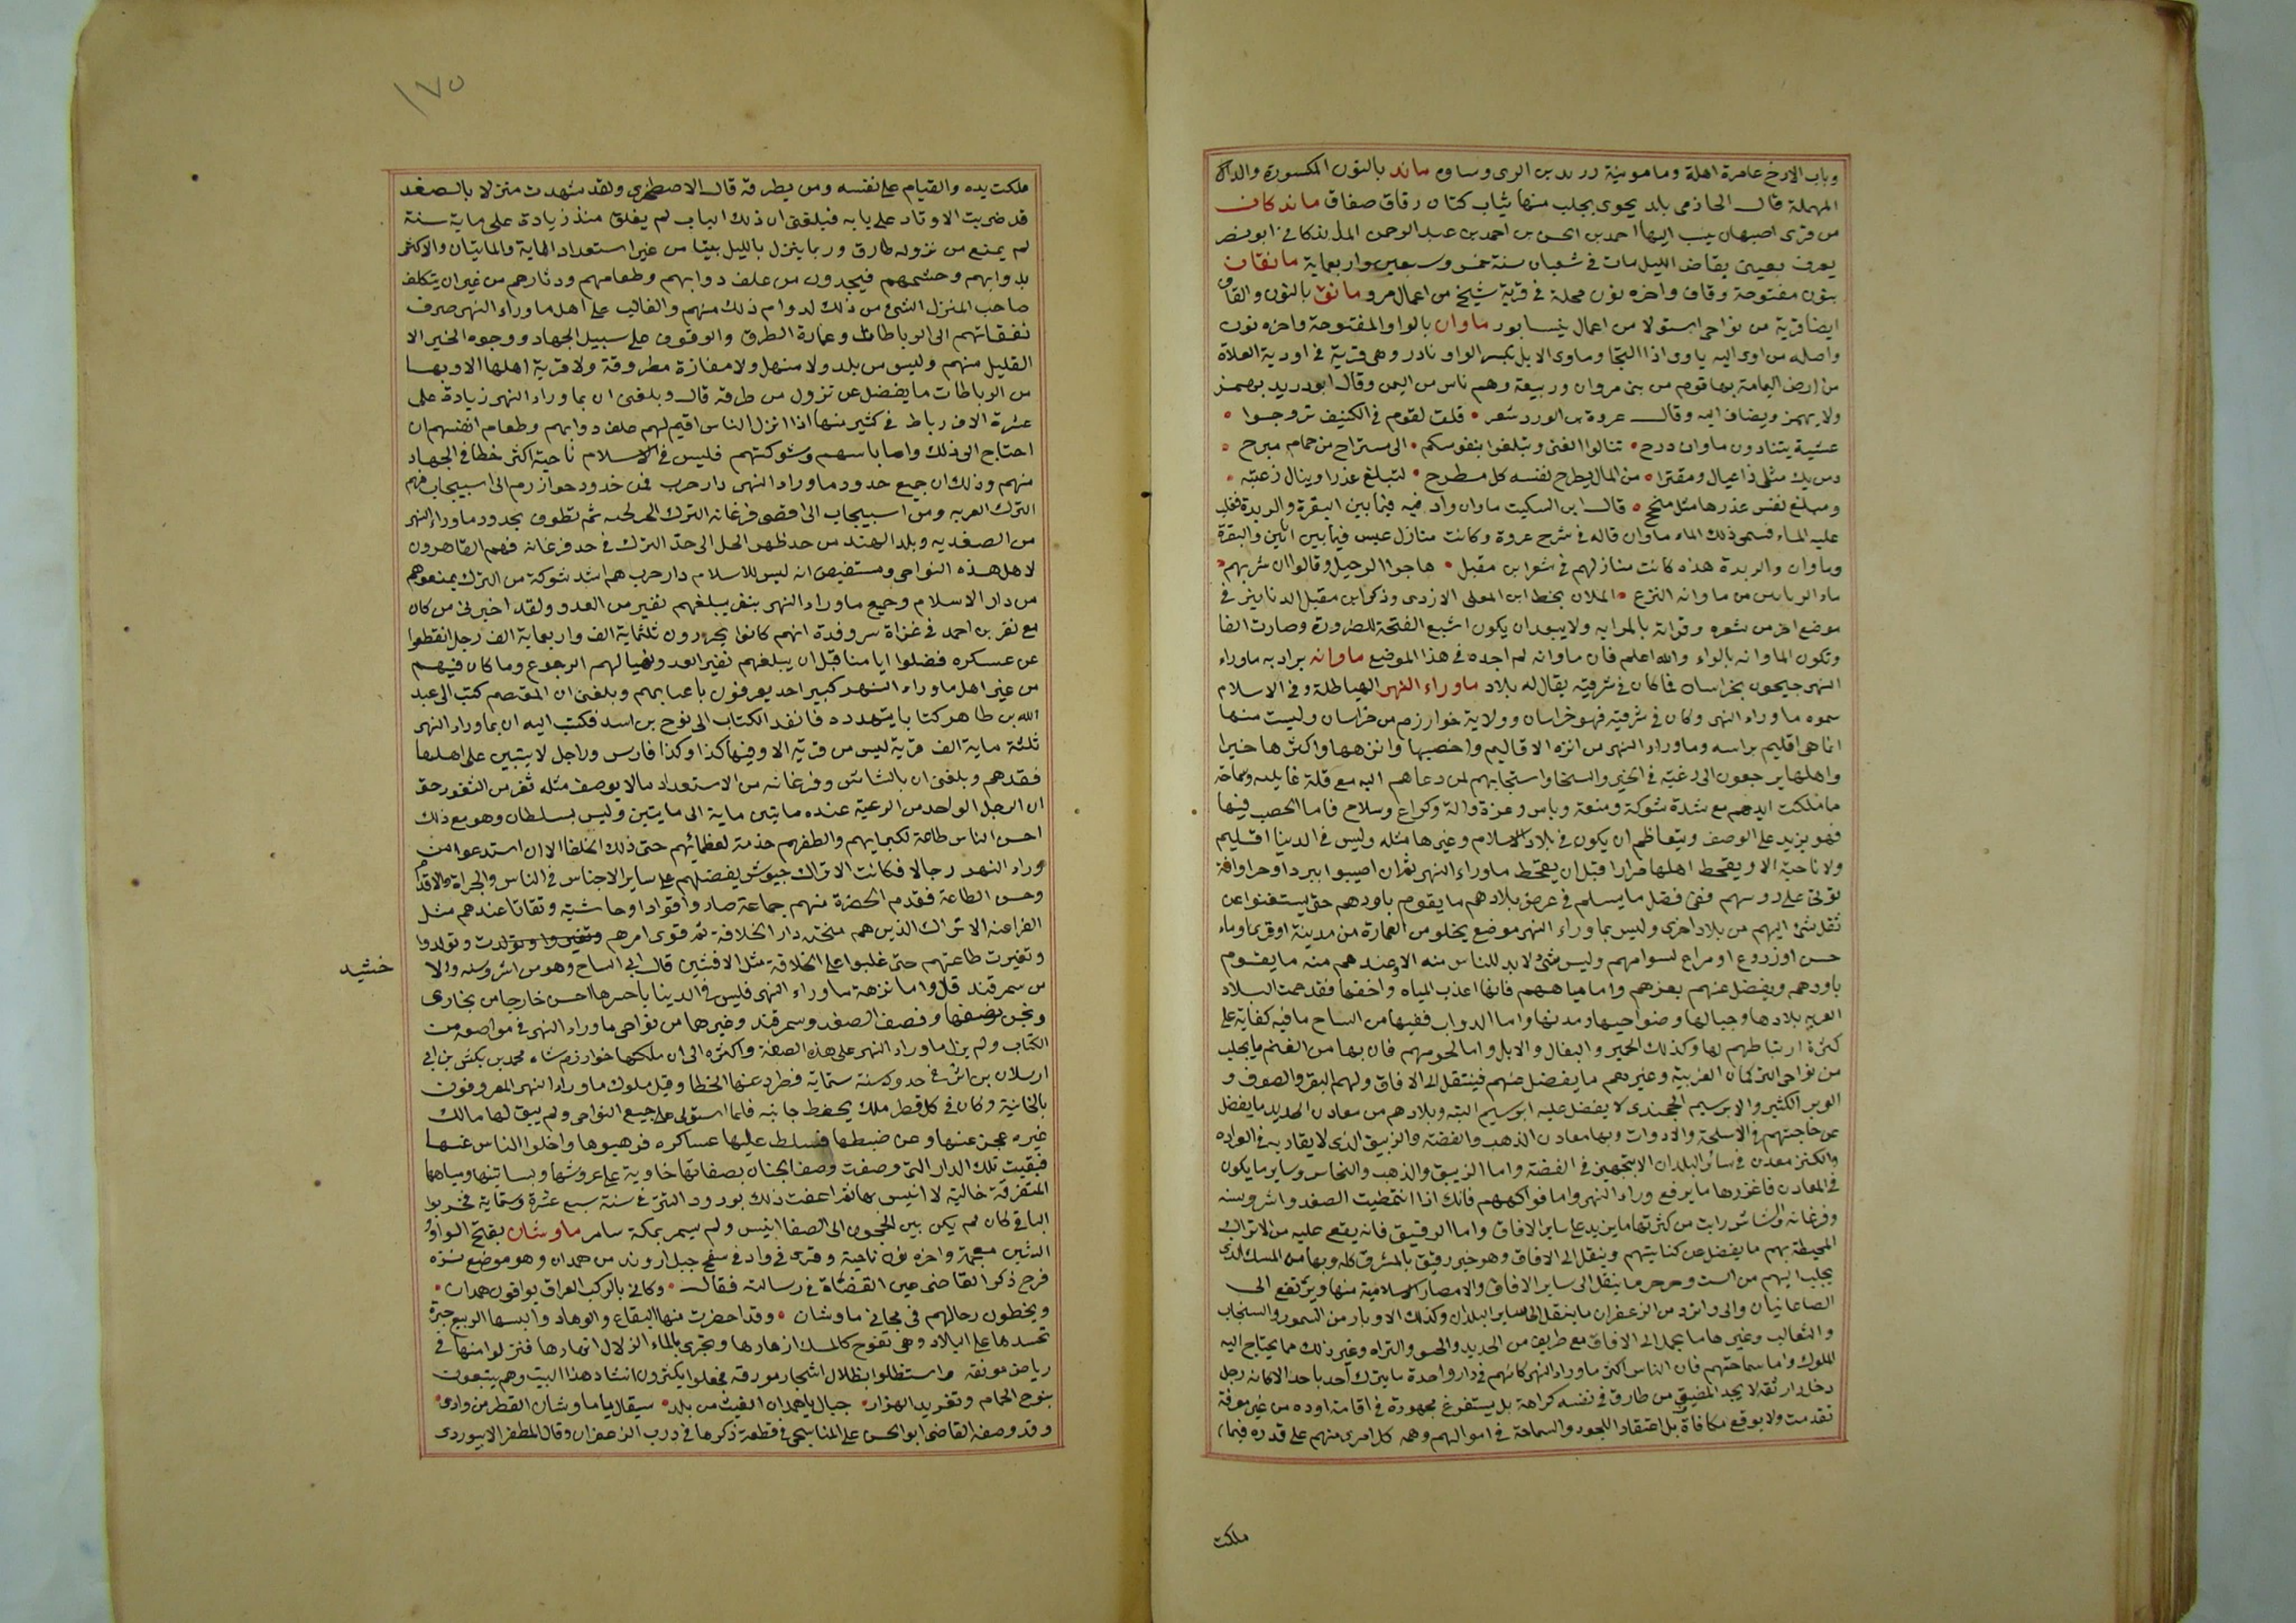 وباب الارخ عامرة اهلة ومامونية زرند بين الرى وساوه ماند بالنون المكسورة والدال
المهملة قال الحازمى بلد بحرى يجلب منها ثياب كتان رقاق صفاق ماندكان
من قرى اصبهان ينسب اليها احمد بن الحسن بن احمد بن عبد الرحمن الماندكانى ابو نصر
يعرف بقاضى الليل مات فى شعبان سنة خمس وسبعين واربعماية مانقان
بنون مفتوحة وقاف واخره نون محلة فى قرية شيخ من اعمال مرو مانق بالنون والقاف
ايضا قرية من نواحى استوا من اعمال نيسابور ماوان بالواو المفتوحة واخره نون
واصله من اوى اليه ياوى اذا التجا وماوى الابل بكسر الواو نادر وهى قرية فى اودية العلاة
من ارض اليمامة بها قوم من بنى مروان وربيعة وهم ناس من اليمن وقال ابو دريد يهمز
ولا يهمز ويضاف اليه وقال عروة بن الورد شعر قلت لقوم فى الكنيف تروحوا
عشية بتنا دون ماوان رزح تنالوا الغنى وتبلغوا بنفوسكم الى مستراح من حمام مبرح
ومن يك مثلى ذا عيال ومقترا من المال يطرح نفسه كل مطرح لتبلغ عذرا وينال زغبة
ومبلغ نفس عذرها مثل منجح قال ابن السكيت ماوان واد فيه فيما بين النقرة والربذة فغلب
عليه الماء فسمى ذلك الماء ماوان قاله فى شرح عروة وكانت منازل عبس فيما بين ابانين والنقرة
وماوان والربذة هذه كانت منازلهم فى شعر ابن مقبل هاجوا الرحيل وقالوا ان شربهم
ماء الربانين من ماوانه النزع الملان بخط ابن المعلى الازدى وذكر ابن مقبل الدنانير فى
موضع اخر من شعره وقرانه بالمرايه ولا يبعد ان يكون اشبع الفتحة للضرورة وصارت الفا
وتكون الماوانه بالواء والله اعلم فان ماوانه لم اجده فى هذا الموضع ماوانه يراد به ماوراء
النهر جيحون بخراسان فما كان فى شرقيه يقال له بلاد ماوراء النهر الهياطلة وفى الاسلام
سموه ماوراء النهر وكان فى شرقيه فهو خراسان وولاية خوارزم من خراسان وليست منها
انما هى اقليم براسه وماوراء النهر من انزه الاقاليم واخصبها وانزهها واكثرها خيرا
واهلها يرجعون الى رغبة فى الخير والسخا واستجابهم لمن دعاهم اليه مع قلة غايلة وسماحة
ما ملكت ايديهم مع شدة شوكة ومنعة وباس وعزة والة وكراع وسلاح فاما الخصب فيها
فهو يزيد على الوصف ويتعاظم ان يكون فى بلاد الاسلام وغيرها مثله وليس فى الدنيا اقليم
ولا ناحية الا ويقحط اهلها مرارا قبل ان يقحط ماوراء النهر ثم ان اصيبوا ببرد او جراد او افة
تاتى على زروعهم ففى فضل ما يسلم فى عرض بلادهم ما يقوم باودهم حتى يستغنوا عن
نقل شئ اليهم من بلاد اخرى وليس بما وراء النهر موضع يخلو من العمارة من مدينة او قرى او ماء
حسن او زروع او مراع لسوامهم وليس شئ لا بد للناس منه الا وعندهم منه ما يقوم
باودهم ويفضل عنهم بغيرهم واما مياههم فانها اعذب المياه واخفها فقد عمت البلاد
العرب بلادها وجبالها وضواحيها ومدنها واما الدواب ففيها من المباح ما فيه كفاية على
كثرة ارتباطهم لها وكذلك الحمير والبغال والابل واما لحومهم فان بها من الغنم ما يجلب
من نواحى التركمان الغزية وغيرهم ما يفضل عنهم فينتقل الى الافاق ولهم البقر والصوف و
الوبر الكثير والابريسم الخجندى لا يفضل عليه ابريسم البتة وبلادهم من معادن الحديد ما يفضل
عن حاجتهم فى الاسلحة والادوات وبها معادن الذهب والفضة والزيبق الذى لا يقاربه فى الغزارة
والكثر معدن فى سائر البلدان الا بنجهير فى الفضة واما الزيبق والذهب والنحاس وساير ما يكون
فى المعادن فاغزرها ما يرفع وراء النهر واما فواكههم فانك اذا انتقطيت الصغد واشروسنه
وفرغانه والشاش رايت من كثرتها ما يزيد على ساير الافاق واما الرقيق فانه يقع عليه من الاتراك
المحيطة بهم ما يفضل عن كفايتهم وينقل الى الافاق وهو خير رقيق بالمشرق كله وبها من المسك الذى
يجلب اليهم من التبت وخرخيز ما ينقل الى ساير الافاق والامصار الاسلامية منها ويرتفع الى
الصغانيان والى واشجرد من الزعفران ما ينتقل الى ساير البلدان وكذلك الاوبار من السمور والسنجاب
والثعالب وغيرها ما يحمل الى الافاق مع طريف من الحديد والختو والبزاة وغير ذلك مما يحتاج اليه
الملوك واما سماحتهم فان الناس اكثر ماوراء النهر كانهم فى دار واحدة ما ينزل احد باحد الا كانه رجل
دخل دار ثقة لا يجد المضيف من طارق فى نفسه كراهة بل يستفرغ مجهوده فى اقامة اوده من غير معرفة
تقدمت ولا توقع مكافاة بل اعتقادا للجود والسماحة فى اموالهم وهمة كل امرئ منهم على قدره فيما
ملكت
١٧٥
ملكت يده والقيام على نفسه ومن يطرقه قال الاصطخرى ولقد شهدت منزلا بالصغد
قد ضربت الاوتاد على بابه فبلغنى ان ذلك الباب لم يغلق منذ زيادة على ماية سنة
لم يمنع من نزوله طارق وربما ينزل بالليل بيتا من غير استعداد الماية والمايتان والاكثر
بدوابهم وحشمهم فيجدون من علف دوابهم وطعامهم ودثارهم من غير ان يتكلف
صاحب المنزل الشئ من ذلك لدوام ذلك منهم والغالب على اهل ماوراء النهر صرف
نفقاتهم الى الرباطات وعمارة الطرق والوقوف على سبيل الجهاد ووجوه الخير الا
القليل منهم وليس من بلد ولا منهل ولا مفازة مطروقة ولا قرية اهلها الا وبها
من الرباطات ما يفضل عن نزول من طرقه قال وبلغنى ان بما وراء النهر زيادة على
عشرة الاف رباط فى كثير منها اذا نزل الناس اقيم لهم علف دوابهم وطعام انفسهم ان
احتاج الى ذلك واما باسهم وشوكتهم فليس فى الاسلام ناحية اكثر حظا فى الجهاد
منهم وذلك ان جميع حدود ماوراء النهر دار حرب فمن حدود خوارزم الى اسبيجاب فهم
الترك الغزيه ومن اسبيجاب الى اقصى فرغانه الترك الخرلخيه ثم تطوف بحدود ماوراء النهر
من الصغديه وبلد الهند من حد ظهر الختل الى حد الترك فى حد فرغانه فهم القاهرون
لاهل هذه النواحى ومستفيض انه ليس للاسلام دار حرب هم اشد شوكة من الترك يمنعوهم
من دار الاسلام وجميع ماوراء النهر ثغر يبلغهم نفير من العدو ولقد اخبرنى من كان
مع نصر بن احمد فى غزاة سروفدة انهم كانوا يحزرون ثلثماية الف واربعماية الف رجل انقطعوا
عن عسكره فضلوا اياما قبل ان يبلغهم نفير العدو وتهيا لهم الرجوع وما كان فيهم
من غير اهل ماوراء النهر كبير احد يعرفون باعيانهم وبلغنى ان المعتصم كتب الى عبد
الله بن طاهر كتابا يتهدده فانفذ الكتاب الى نوح بن اسد فكتب اليه ان بما وراء النهر
ثلثة ماية الف قرية ليس من قرية الا وفيها كذا وكذا فارس وراجل لا يتبين على اهلها
فقدهم وبلغنى ان بالشاش وفرغانه من الاستعداد ما لا يوصف مثله ثغر من الثغور حتى
ان الرجل الواحد من الرعية عنده ما بين ماية الى مايتين وليس بسلطان وهو مع ذلك
احسن الناس طاعة لكبرايهم والطفهم خدمة لعظمائهم حتى ذلك الخلفا الا ان استدعوا من
وراء النهر رجالا فكانت الاتراك جيوش يفضلهم على ساير الاجناس فى الباس والجراة والاقدام
وحسن الطاعة فقدم الحضرة منهم جماعة صاروا قوادا وحاشية وثقاتا عندهم مثل
الفراعنه الاتراك الذين هم شحنه دار الخلافة ثم قوى امرهم وتوالدوا
وتغيرت طاعتهم حتى غلبوا على الخلافة مثل الافشين قال ابى الساج وهو من اشروسنه والا
خشيد
من سمرقند قالوا واما نزهة ماوراء النهر فليس فى الدنيا باسرها احسن خارجا من بخارى
ونحن نصفها ونصف الصغد وسمرقند وغيرها من نواحى ماوراء النهر فى مواضعه من
الكتاب ولم يزل ماوراء النهر على هذه الصفة واكثره الى ان ملكتها خوارزم شاه محمد بن تكش بن ابى
ارسلان بن اتسز فى حدود سنة ستماية فطرد عنها الخطا وقتل ملوك ماوراء النهر المعروفون
بالخانية وكان فى كل قطر ملك يحفظ جانبه فلما استولى على جميع النواحى ولم يبق لها مالك
غيره عجز عنها وعن ضبطها فسلط عليها عساكره فنهبوها واخلوا الناس عنها
فبقيت تلك الدار التى وصفت وصف الجنان بصفاتها خاوية على عروشها وبساتينها ومياهها
المتفرقة خالية لا انيس بها ثم اعقب ذلك بورود التتر فى سنة سبع عشرة وستماية فخربوا
الباقى كان لم يكن بين الحجون الى الصفا انيس ولم يسمر بمكة سامر ماوشان بفتح الواو و
الشين معجمة واخره نون ناحية وقرى فى واد فى سفح جبل اروند من همدان وهو موضع نزه
فرح ذكره القاضى عين القضاة فى رسالته فقال وكانى بالركب العراق يوافون همدان
ويحطون رحالهم فى مجانى ماوشان وقد اخضرت منها البقاع والوهاد والبسها الربيع حبرة
تحسدها على البلاد وهى تفوح كالمسك ازهارها وتجرى بالماء الزلال انهارها فنزلوا منها فى
رياض مونقه واستظلوا بظلال اشجار مورقه فجعلوا يكثرون انشاد هذا البيت وهم يتبعون
بنوح الحمام وتغريد الهزار حياك يا همدان الغيث من بلد سقاك يا ماوشان القطر من وادى
وقد وصفه القاضى ابو الحسن على المنابحى فى قطعة ذكرها فى درب الزعفران وقال المظفر الابيوردى